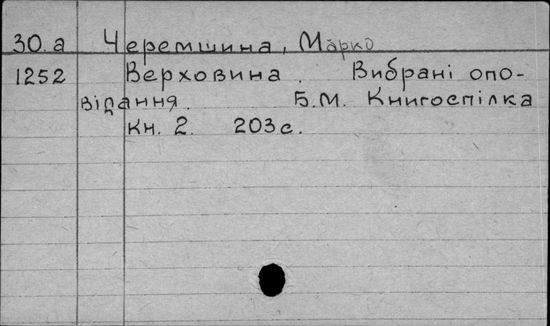 30.а Черемшина, Марко
1252 Верховина. Вибрані опо-
відання. Б.М. Книгоспілка
кн. 2. 203 с.